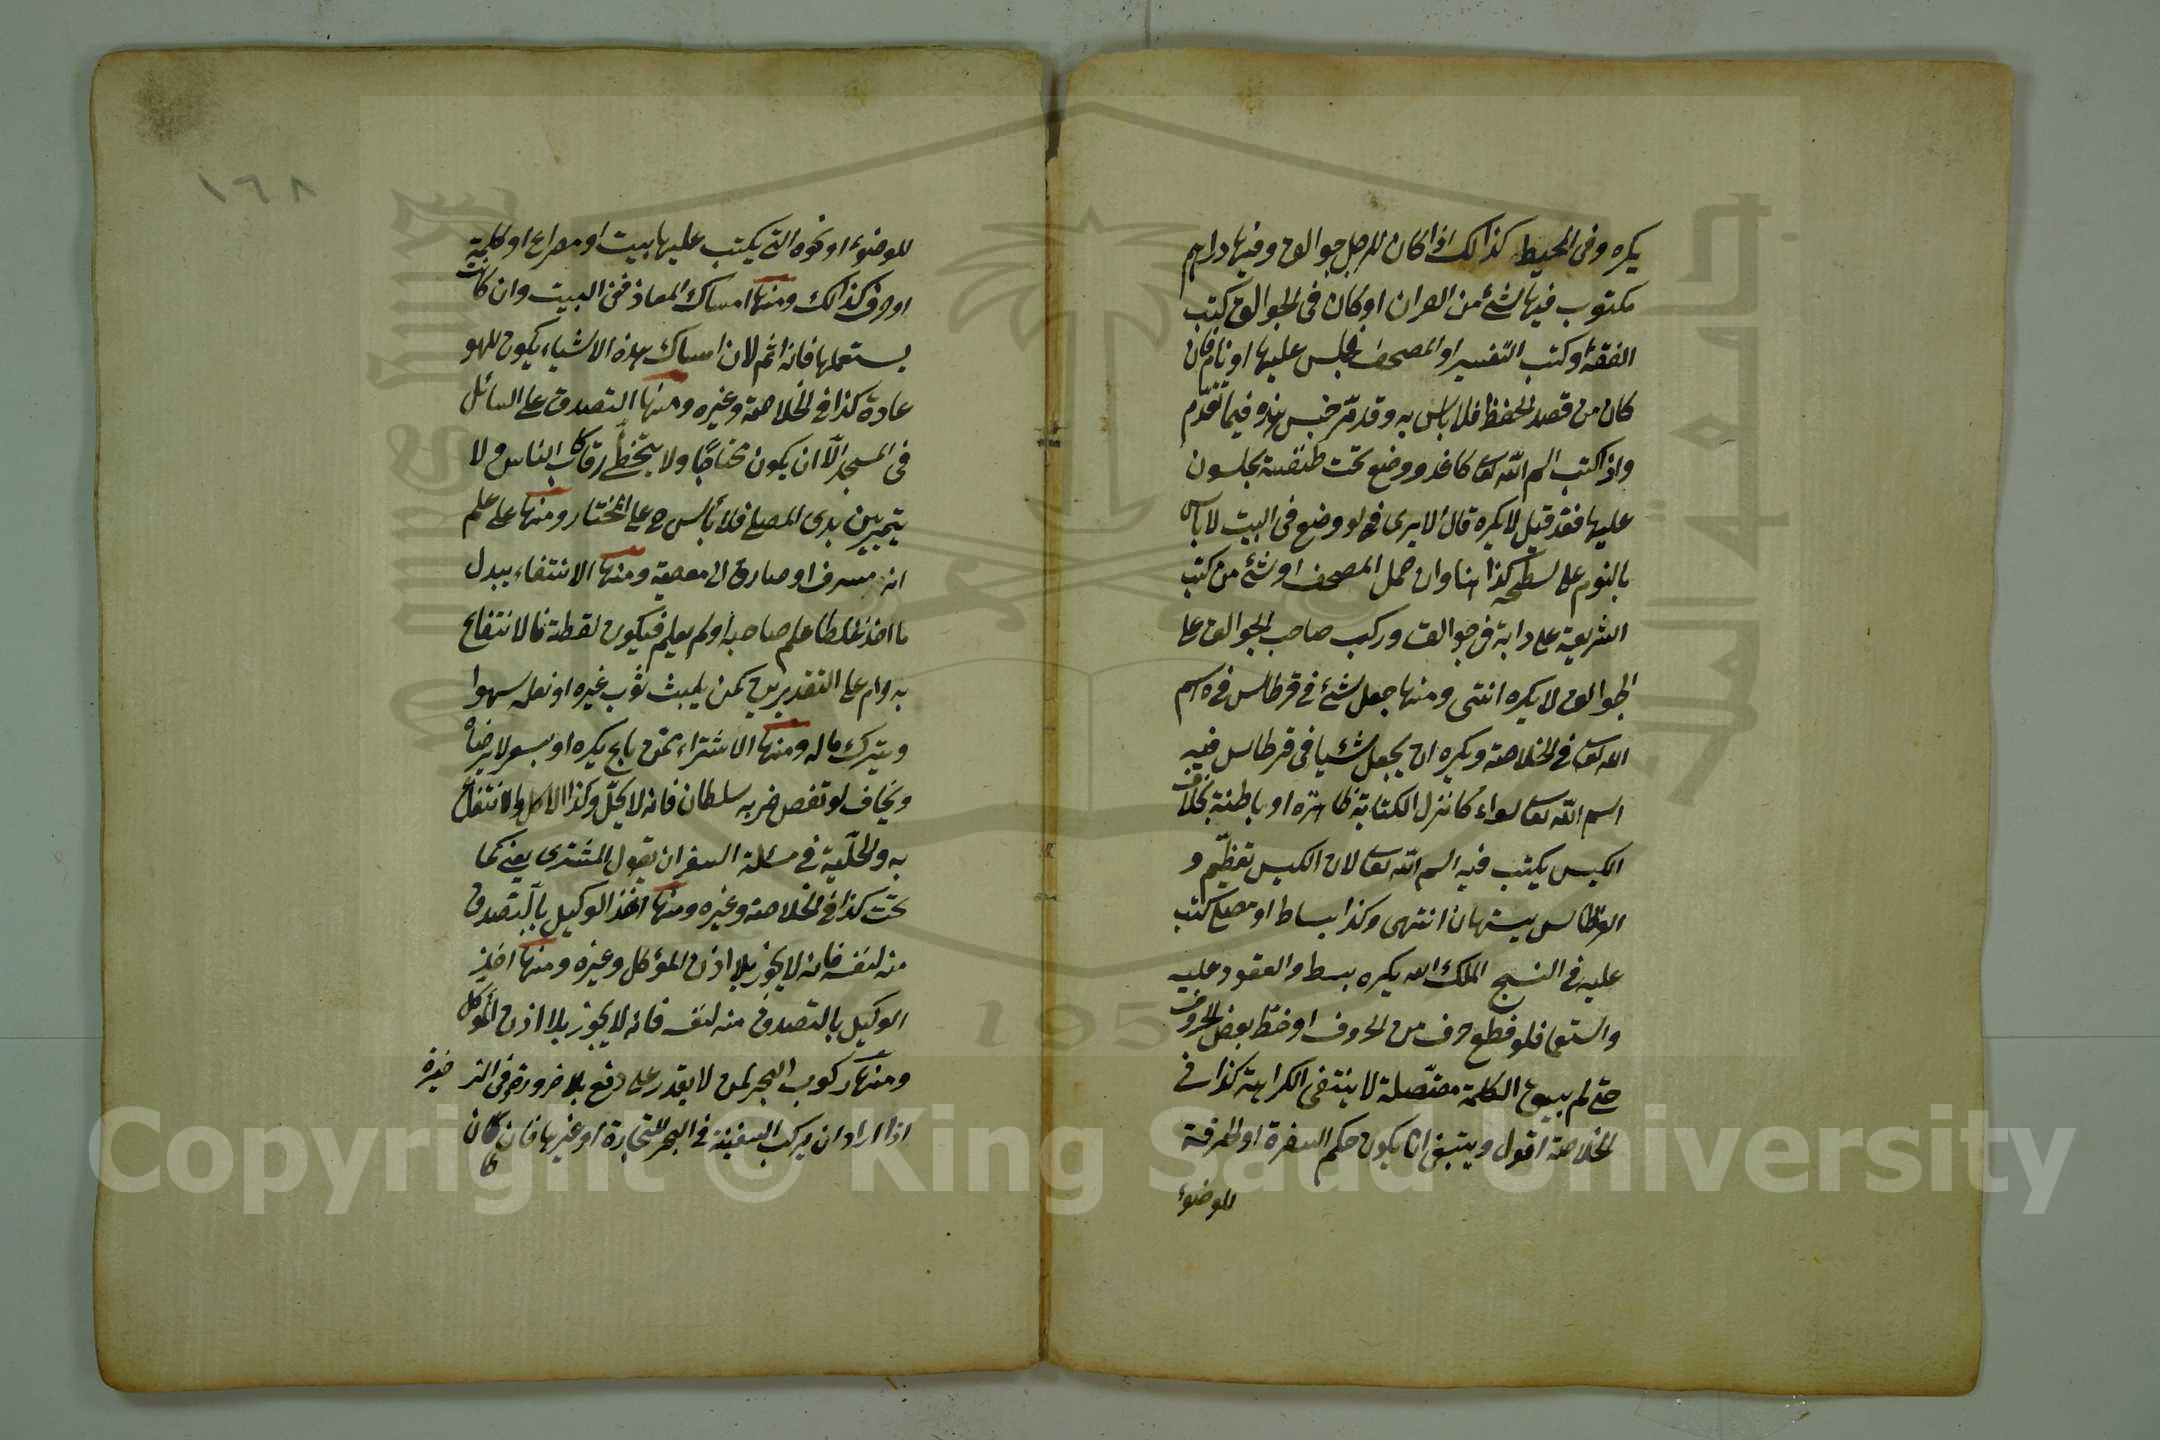 يكره وفى المحيط كذلك اذا كان للرجل جوالق وفيها دراهم
مكتوب فيها شئ من القران او كان فى الجوالق كتب
الفقه او كتب التفسير او المصحف فجلس عليها او نام فان
كان من قصد الحفظ فلا باس به وقد مر جنس هذه فيما تقدم
واذا كتب اسم الله تعا كاغد ووضع تحت طنفسة يجلسون
عليها فقد قيل لا يكره قال الا يرى انه لو وضع فى البيت لا باس
بالنوم على سطحه كذا هنا وان حمل المصحف او شئ من كتب
الشريعة على دابة فى جوالق وركب صاحب الجوالق على
الجوالق لا يكره انتهى ومنها جعل شئ فى قرطاس فيه اسم
الله تعا فى الخلاصة ويكره ان يجعل شئيا فى قرطاس فيه
اسم الله تعا سواء كانت الكتابة ظاهره او باطنة بخلاف
الكيس يكتب فيه اسم الله تعا لان الكيس تعظيم و
القرطاس يستهان انتهى وكذا بساط او مصلى كتب
عليه فى النسج الملك لله يكره بسط والقعود عليه
واستعما فلو قطع حرف من الحروف او خيط بعض الحروف
حتى لم يبق الكلمة متصلة لا ينتفى الكراهة كذا فى
الخلاصة اقول وينبغى ان يكون حكم السفرة او الخرقة
للوضوء
١٦٨
للوضوء او نحوه التى يكتب عليها بيت او مصراع او كلمة
او حرف كذلك ومنها امساك المعازف فى البيت وان كان
يستعملها فانه اثم لان امساك هذه الاشياء يكون للهو
عادة كذا فى الخلاصة وغيره ومنها التصدق على السائل
فى المسجد الا ان يكون محتاجا ولا يتخطى رقاب الناس ولا
يتمر بين يدى المصلى فلا بأس ح على المختار ومنها على علم
انه مسرف او صارف الى معصية ومنها الانتفاء ببدل
ما اخذ غلطا علم صاحبه او لم يعلم فيكون لقطة فالانتفاع
به حرام على التقديرين كمن يلبث ثوب غيره او نعله سهوا
ويترك ماله ومنها الاشتراء ممن باع يكره او بسعر لا يرضاه
ويخاف لو نقص ضربه سلطان فانه لا يحل وكذا الاكل والانتفاع
به والحلية فى مسئلة السعر ان يقول المشترى بعنى كما
تحب كذا فى الخلاصة وغيره ومنها اخذ الوكيل بالتصدق
منه لنفسه فانه لا يجوز بلا اذن المؤكل وغيره ومنها اخذ
الوكيل بالتصدق منه لنفسه فانه لا يجوز بلا اذن المؤكل
ومنها ركوب البحر لمن لا يقدر على دفع بلا ضرورة فى الذخيرة
اذا اراد ان يركب السفينة فى البحر للتجارة او غيرها فان كان
Copyright © King Saud University
1957